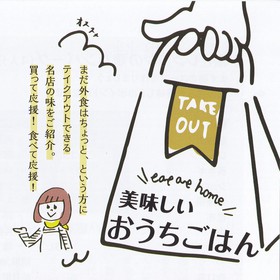 オススメ
まだ外食はちょっと、という方に
テイクアウトできる
名店の味をご紹介。
買って応援！食べて応援！
TAKE
OUT
eat at home
美味しい
おうちごはん